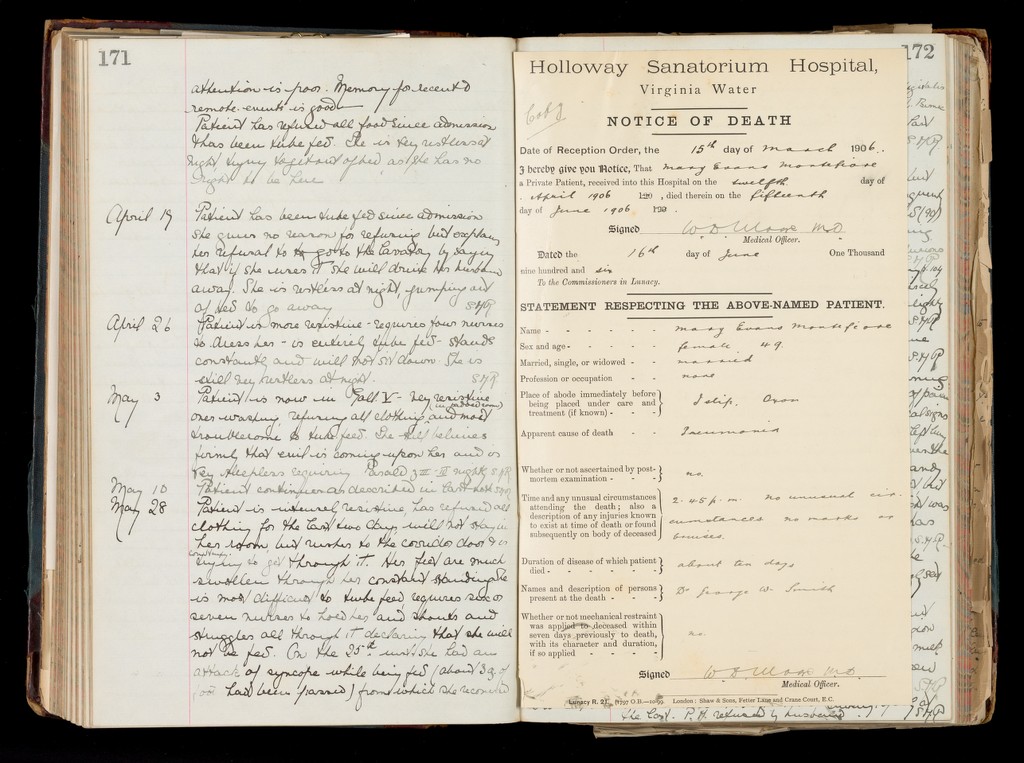 171
attention is poor. Memory for recent &
remote events is good
Patient has refused all food since admission
& has been tube fed. She is very restless at
night trying to get out of bed, as she has no
right to be here
April 19 Patient has been tube fed since admission
She gives no reason for refusing but explains
her refusal to go to the lavatory by saying
that if she uses it she will drive her husband
away. She is restless at night, jumping out
of bed to go away
April 26 Patient is more resistive - requires four nurses
to dress her - is entirely tube fed - stands
constantly and will not sit down. She is
still very restless at night.
May 3 Patient is now in Gall V - very resistive
over washing refusing all clothing and most
troublesome to tube feed. She still believes
firmly that evil is coming upon her and is
very sleepless requiring Parald
May 10 Patient continues as described in last note
May 28 Patient is resistive, has refused all
clothing for the last two days will not stay in
her room but rushes to the corridor door & is
constantly
trying to get through it. Her feet are much
swollen through her constant standing. She
is most difficult to tube feed requires six or
seven nurses to hold her and shouts and
struggles all through it declaring that she will
not be fed. On the 25th inst she had an
attack of syncope while being fed (about 3 oz of
had been passed) from which she recovered
172
Holloway Sanatorium Hospital,
Virginia Water
NOTICE OF DEATH
Date of Reception Order, the 15th day of March 1906.
I hereby give you Notice, That Mary Evans Montefiore
a Private Patient, received into this Hospital on the twelfth day of
April 1906 190 , died therein on the fifteenth
day of June 1906 190 .
Signed W. D. Moore M.D.
Medical Officer.
Dated the 16th day of June One Thousand
nine hundred and six
To the Commissioners in Lunacy.
STATEMENT RESPECTING THE ABOVE-NAMED PATIENT.
Name - - - - - - Mary Evans Montefiore
Sex and age - - - - - female 49
Married, single, or widowed - - married
Profession or occupation - - none
Place of abode immediately before
being placed under care and
treatment (if known) - - - Islip, Oxon
Apparent cause of death - - Pneumonia
Whether or not ascertained by post-
mortem examination - - - no.
Time and any unusual circumstances
attending the death; also a
description of any injuries known
to exist at time of death or found
subsequently on body of deceased
2.45 p.m. no unusual cir
cumstances no marks or
bruises.
Duration of disease of which patient
died - - - - - about ten days
Names and description of persons
present at the death - - - Dr George W. Smith
Whether or not mechanical restraint
was applied to deceased within
seven days previously to death,
with its character and duration,
if so applied - - - - no.
Signed W. D. Moore M.D.
Medical Officer.
Lunacy R. 21. London: Shaw & Sons, Fetter Lane and Crane Court, E.C.